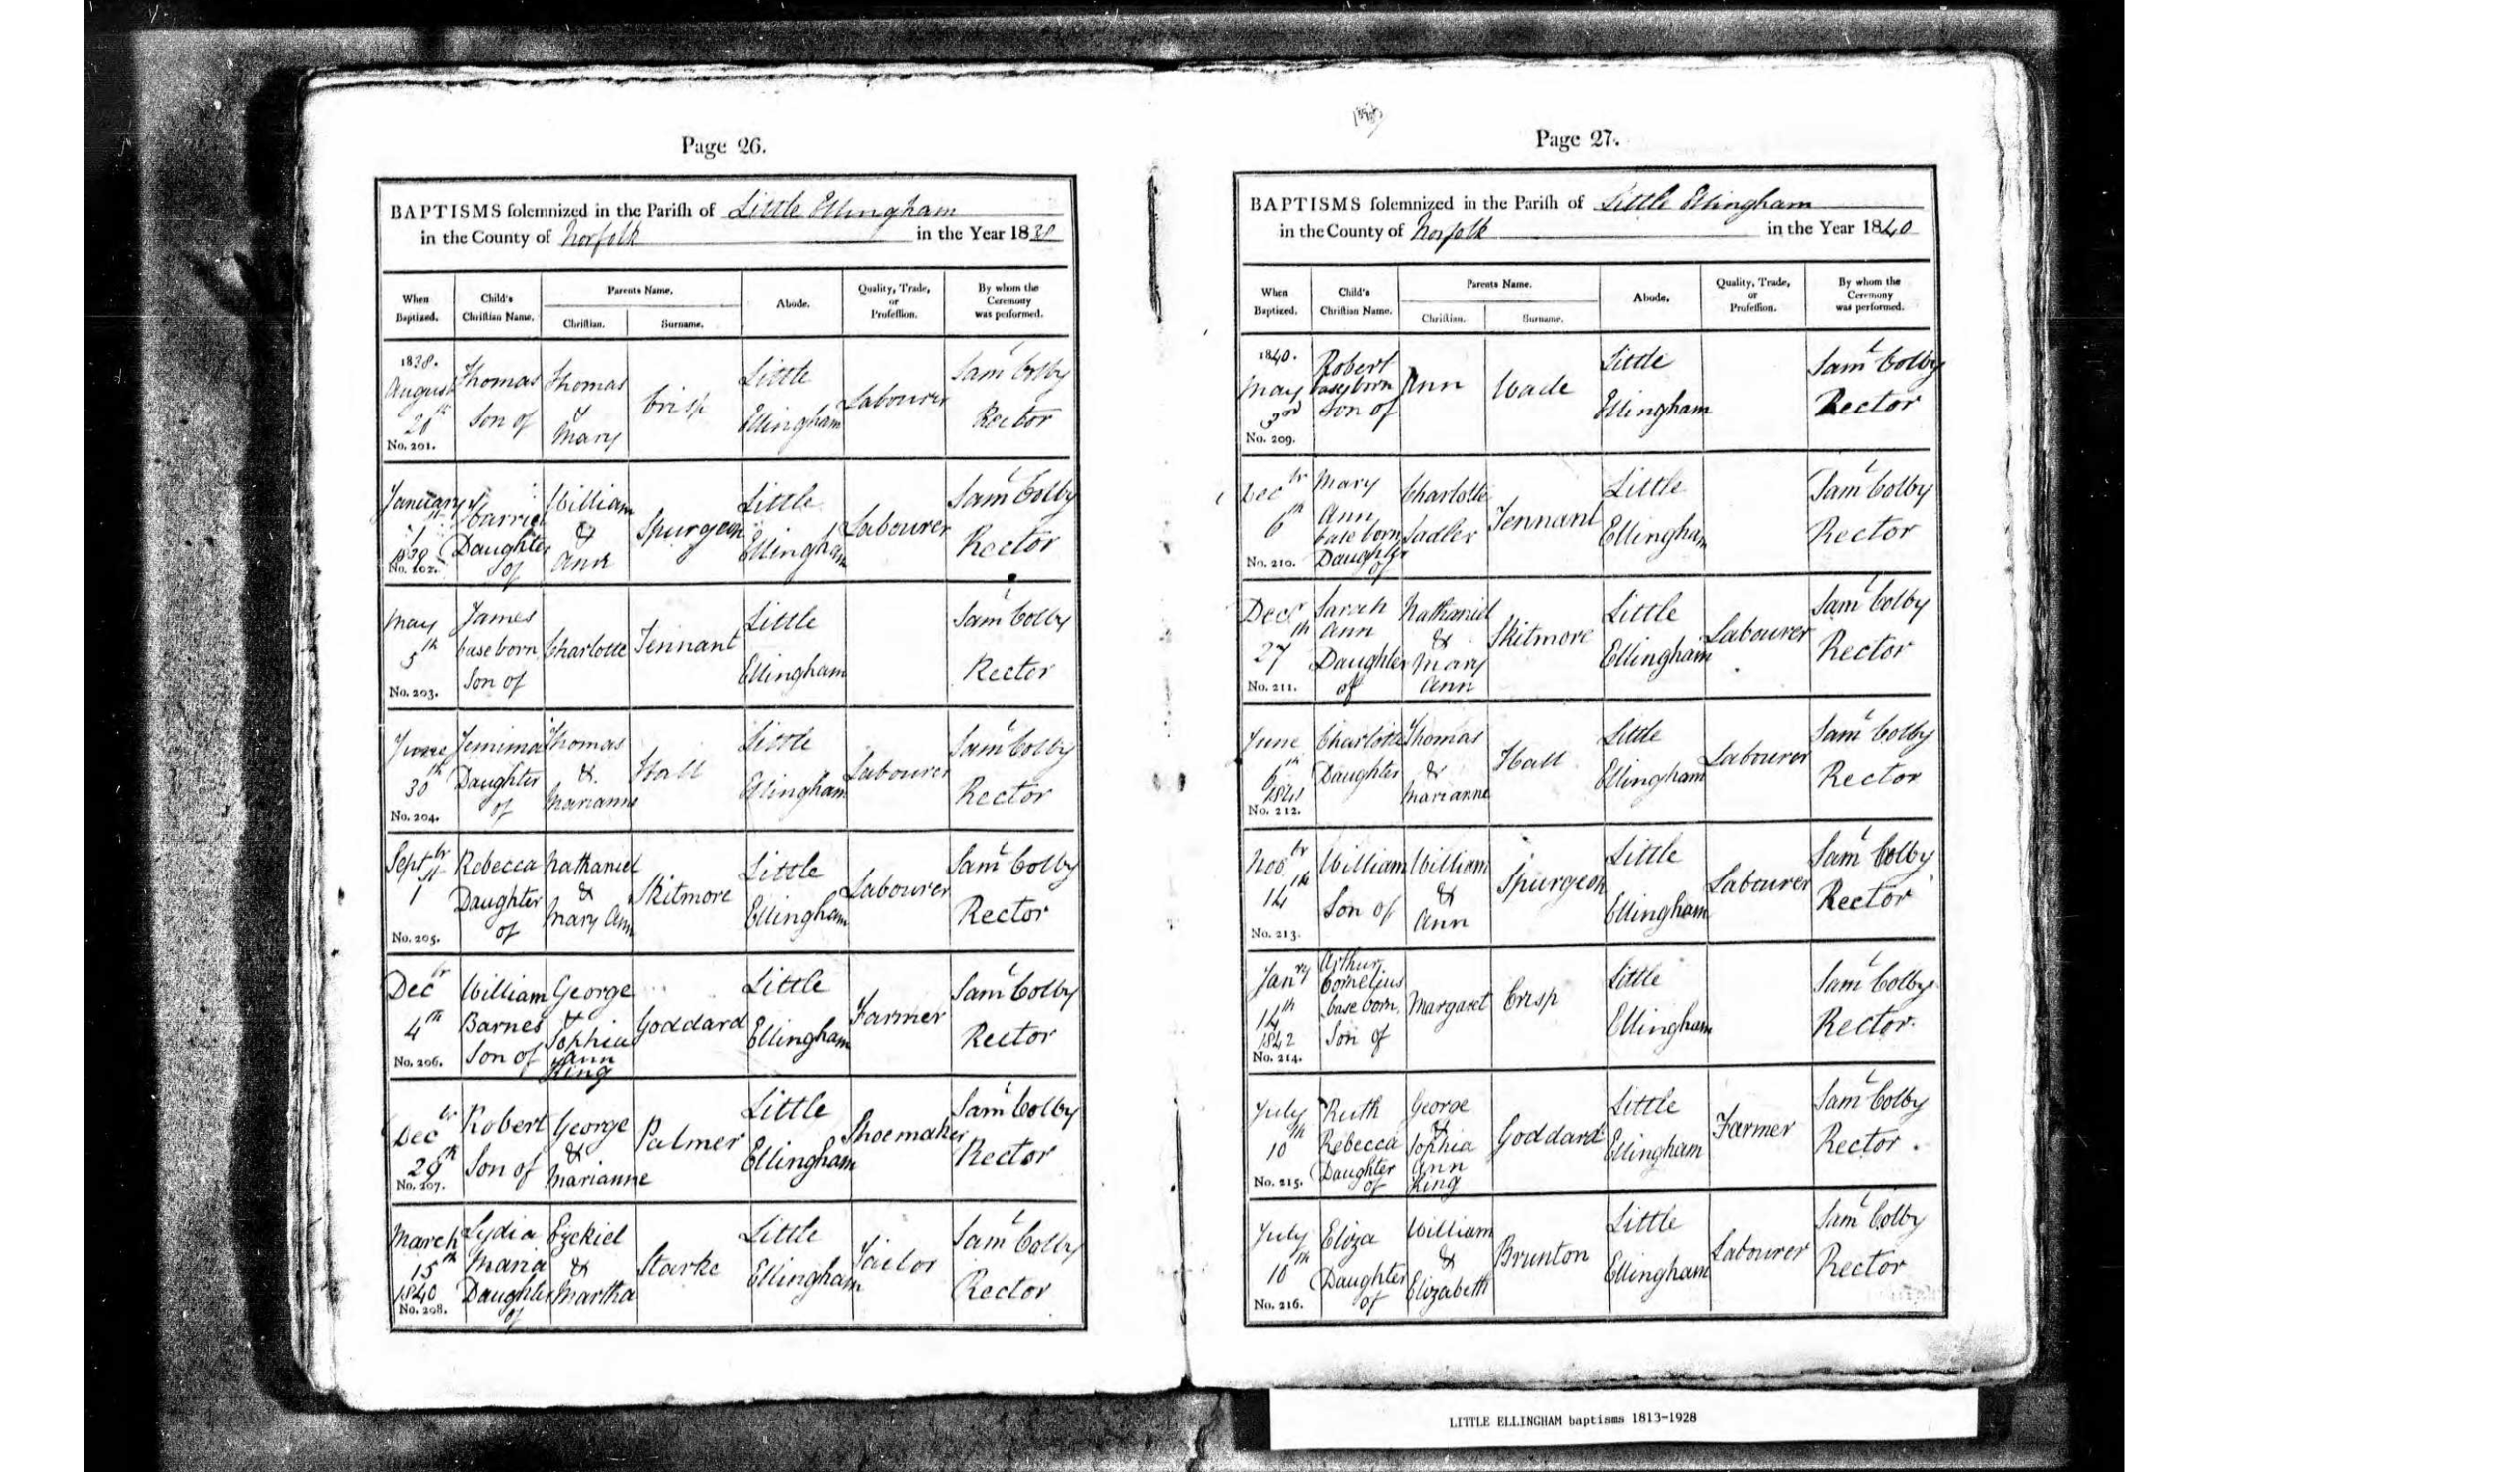 Page 26.
BAPTISMS solemnized in the Parish of Little Ellingham
in the County of Norfolk in the Year 1838
When Baptized. Child's Christian Name. Parents Name. Christian. Surname. Abode. Quality, Trade, or Profession. By whom the Ceremony was performed.
1838. August th No. 201. Thomas Son of Thomas & Mary Crisp Little Ellingham Labourer Saml Colby Rector
January 1st No. 202. Harriet Daughter of William & Ann Spurgeon Little Ellingham Labourer Saml Colby Rector
May 5th No. 203. James base born Son of Charlotte Tennant Little Ellingham Saml Colby Rector
June 30th No. 204. Jemima Daughter of Thomas & Marianne Hall Little Ellingham Labourer Saml Colby Rector
Septbr 1st No. 205. Rebecca Daughter of Nathaniel & Mary Ann Skitmore Little Ellingham Labourer Saml Colby Rector
Decbr 4th No. 206. William Barnes Son of George & Sophia Ann King Goddard Little Ellingham Farmer Saml Colby Rector
Decbr 29th No. 207. Robert Son of George & Marianne Palmer Little Ellingham Shoemaker Saml Colby Rector
March 15th 1840 No. 208. Lydia Maria Daughter of Ezekiel & Martha Starke Little Ellingham Tailor Saml Colby Rector
Page 27.
BAPTISMS solemnized in the Parish of Little Ellingham
in the County of Norfolk in the Year 1840
When Baptized. Child's Christian Name. Parents Name. Christian. Surname. Abode. Quality, Trade, or Profession. By whom the Ceremony was performed.
1840. May 3rd No. 209. Robert base born Son of Ann Wade Little Ellingham Saml Colby Rector
Decbr 6th No. 210. Mary Ann base born Daughter of Charlotte Sadler Tennant Little Ellingham Saml Colby Rector
Decr 27th No. 211. Sarah Ann Daughter of Nathaniel & Mary Ann Skitmore Little Ellingham Labourer Saml Colby Rector
June 6th 1841 No. 212. Charlotte Daughter Thomas & Marianne Hall Little Ellingham Labourer Saml Colby Rector
Novbr 14th No. 213. William Son of William & Ann Spurgeon Little Ellingham Labourer Saml Colby Rector
Janry 14th 1842 No. 214. Arthur Cornelius base born Son of Margaret Crisp Little Ellingham Saml Colby Rector.
July 10th No. 215. Ruth Rebecca Daughter of George & Sophia Ann King Goddard Little Ellingham Farmer Saml Colby Rector.
July 10th No. 216. Eliza Daughter of William & Elizabeth Brunton Little Ellingham Labourer Saml Colby Rector
LITTLE ELLINGHAM baptisms 1813-1928